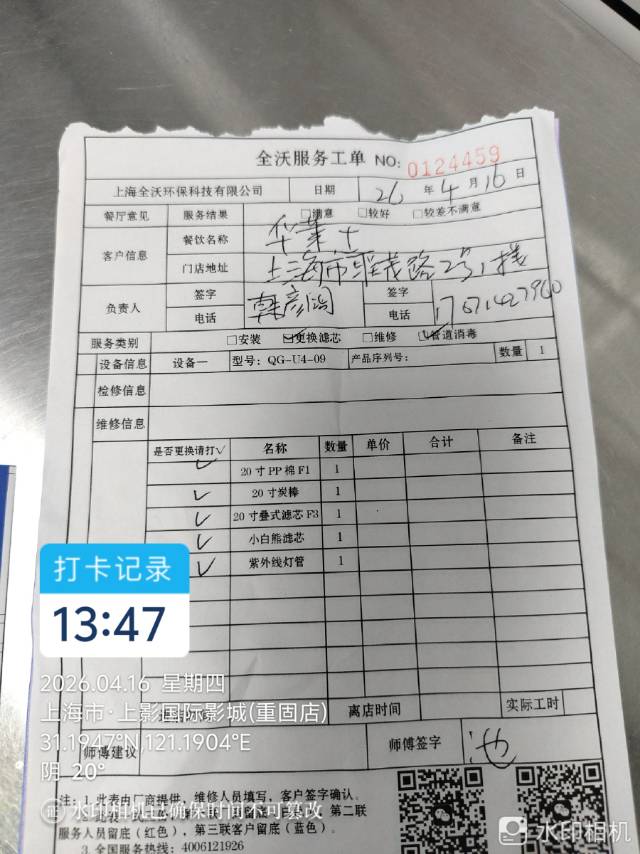 全沃服务工单 NO: 0124459
上海全沃环保科技有限公司 日期 26 年 4 月 16 日
餐厅意见 服务结果 □满意 □较好 □较差不满意
客户信息 餐饮名称 华莱士
门店地址 上海市 路2号1楼
负责人 签字 韩彦 签字
电话 电话
服务类别 □安装 ☑更换滤芯 □维修 ☑管道消毒
设备信息 设备一 型号:QG-U4-09 产品序列号: 数量 1
检修信息
维修信息
是否更换请打√ 名称 数量 单价 合计 备注
√ 20寸PP棉F1 1
√ 20寸炭棒 1
√ 20寸叠式滤芯F3 1
√ 小白熊滤芯 1
√ 紫外线灯管 1
打卡记录
13:47
2026.04.16 星期四
上海市·上影国际影城(重固店)
31.1947°N,121.1904°E
阴 20°
离店时间 实际工时
师傅建议 师傅签字 池
注:1.此表由厂商提供,维修人员填写,客户签字确认。
第二联
服务人员留底(红色),第三联客户留底(蓝色)。
3.全国服务热线:4006121926
水印相机已确保时间不可篡改
水印相机